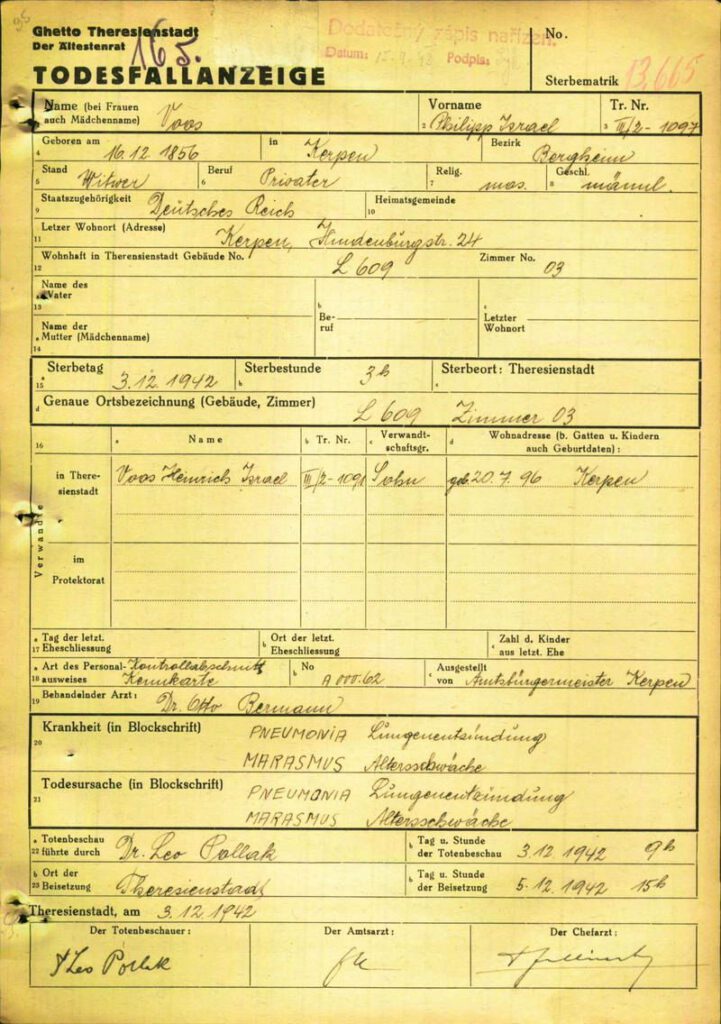 Ghetto Theresienstadt
Der Ältestenrat
165.
Dodatečný zápis nařízen.
Datum: Podpis:
No.
TODESFALLANZEIGE
Sterbematrik 13,665
Name (bei Frauen auch Mädchenname) Voos
Vorname Philipp Israel
Tr. Nr. III/2-1097
Geboren am 16.12 1856 in Kerpen Bezirk Bergheim
Stand Witwer Beruf Privater Relig. mos. Geschl. männl.
Staatszugehörigkeit Deutsches Reich Heimatsgemeinde
Letzer Wohnort (Adresse) Kerpen, Hindenburgstr. 24
Wohnhaft in Theresienstadt Gebäude No. L 609 Zimmer No. 03
Name des Vater
Beruf
Letzter Wohnort
Name der Mutter (Mädchenname)
Sterbetag 3.12.1942 Sterbestunde 3h Sterbeort: Theresienstadt
Genaue Ortsbezeichnung (Gebäude, Zimmer) L 609 Zimmer 03
Name Tr. Nr. Verwandtschaftsgr. Wohnadresse (b. Gatten u. Kindern auch Geburtdaten):
Verwandte
in Theresienstadt Voos Heinrich Israel Sohn geb. 20.7.96 Kerpen
im Protektorat
Tag der letzt. Eheschliessung
Ort der letzt. Eheschliessung
Zahl d. Kinder aus letzt. Ehe
Art des Personalausweises Kontrollabschnitt Kennkarte No A 000.62 Ausgestellt von Amtsbürgermeister Kerpen
Behandelnder Arzt: Dr. Otto Bermann
Krankheit (in Blockschrift) PNEUMONIA Lungenentzündung
MARASMUS Altersschwäche
Todesursache (in Blockschrift) PNEUMONIA Lungenentzündung
MARASMUS Altersschwäche
Totenbeschau führte durch Dr. Leo Pollak Tag u. Stunde der Totenbeschau 3.12 1942 9h
Ort der Beisetzung Theresienstadt Tag u. Stunde der Beisetzung 5.12 1942 15h
Theresienstadt, am 3.12.1942
Der Totenbeschauer: Der Amtsarzt: Der Chefarzt:
Leo Pollak